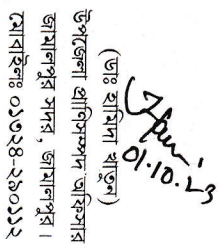 01.10.23
(ডাঃ হামিদা খাতুন)
উপজেলা প্রাণিসম্পদ অফিসার
জামালপুর সদর, জামালপুর।
মোবাইলঃ ০১৭২৪-২৯০১১২